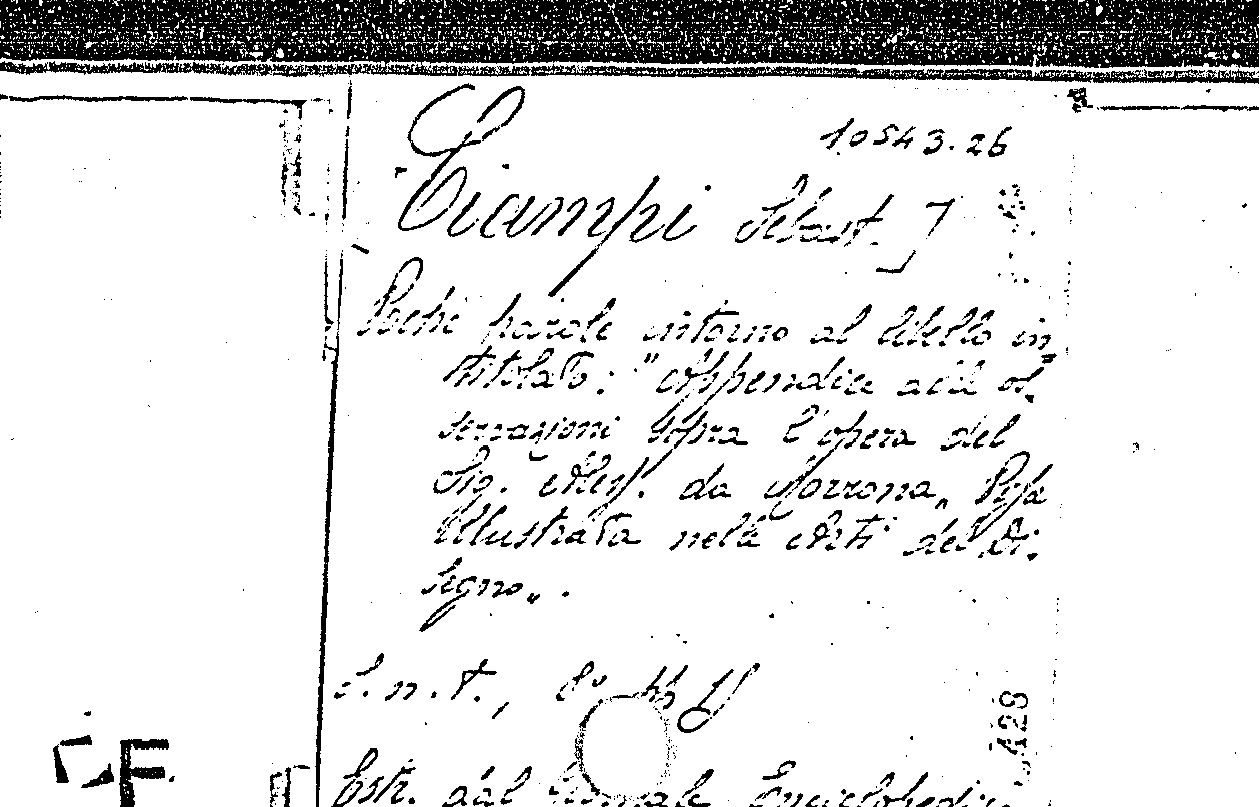 10543.26
Ciampi Sebast. ]
Pochi parole intorno al libello in=
titolato: "Appendice alle os,
servazioni sopra l'opera del
Sig. Aless. da Morrona, Pisa
illustrata nelle Arti del Di,
segno„.
S. n. t., 8° pp
428
Estr. dal Giornale Enciclopedico
F.